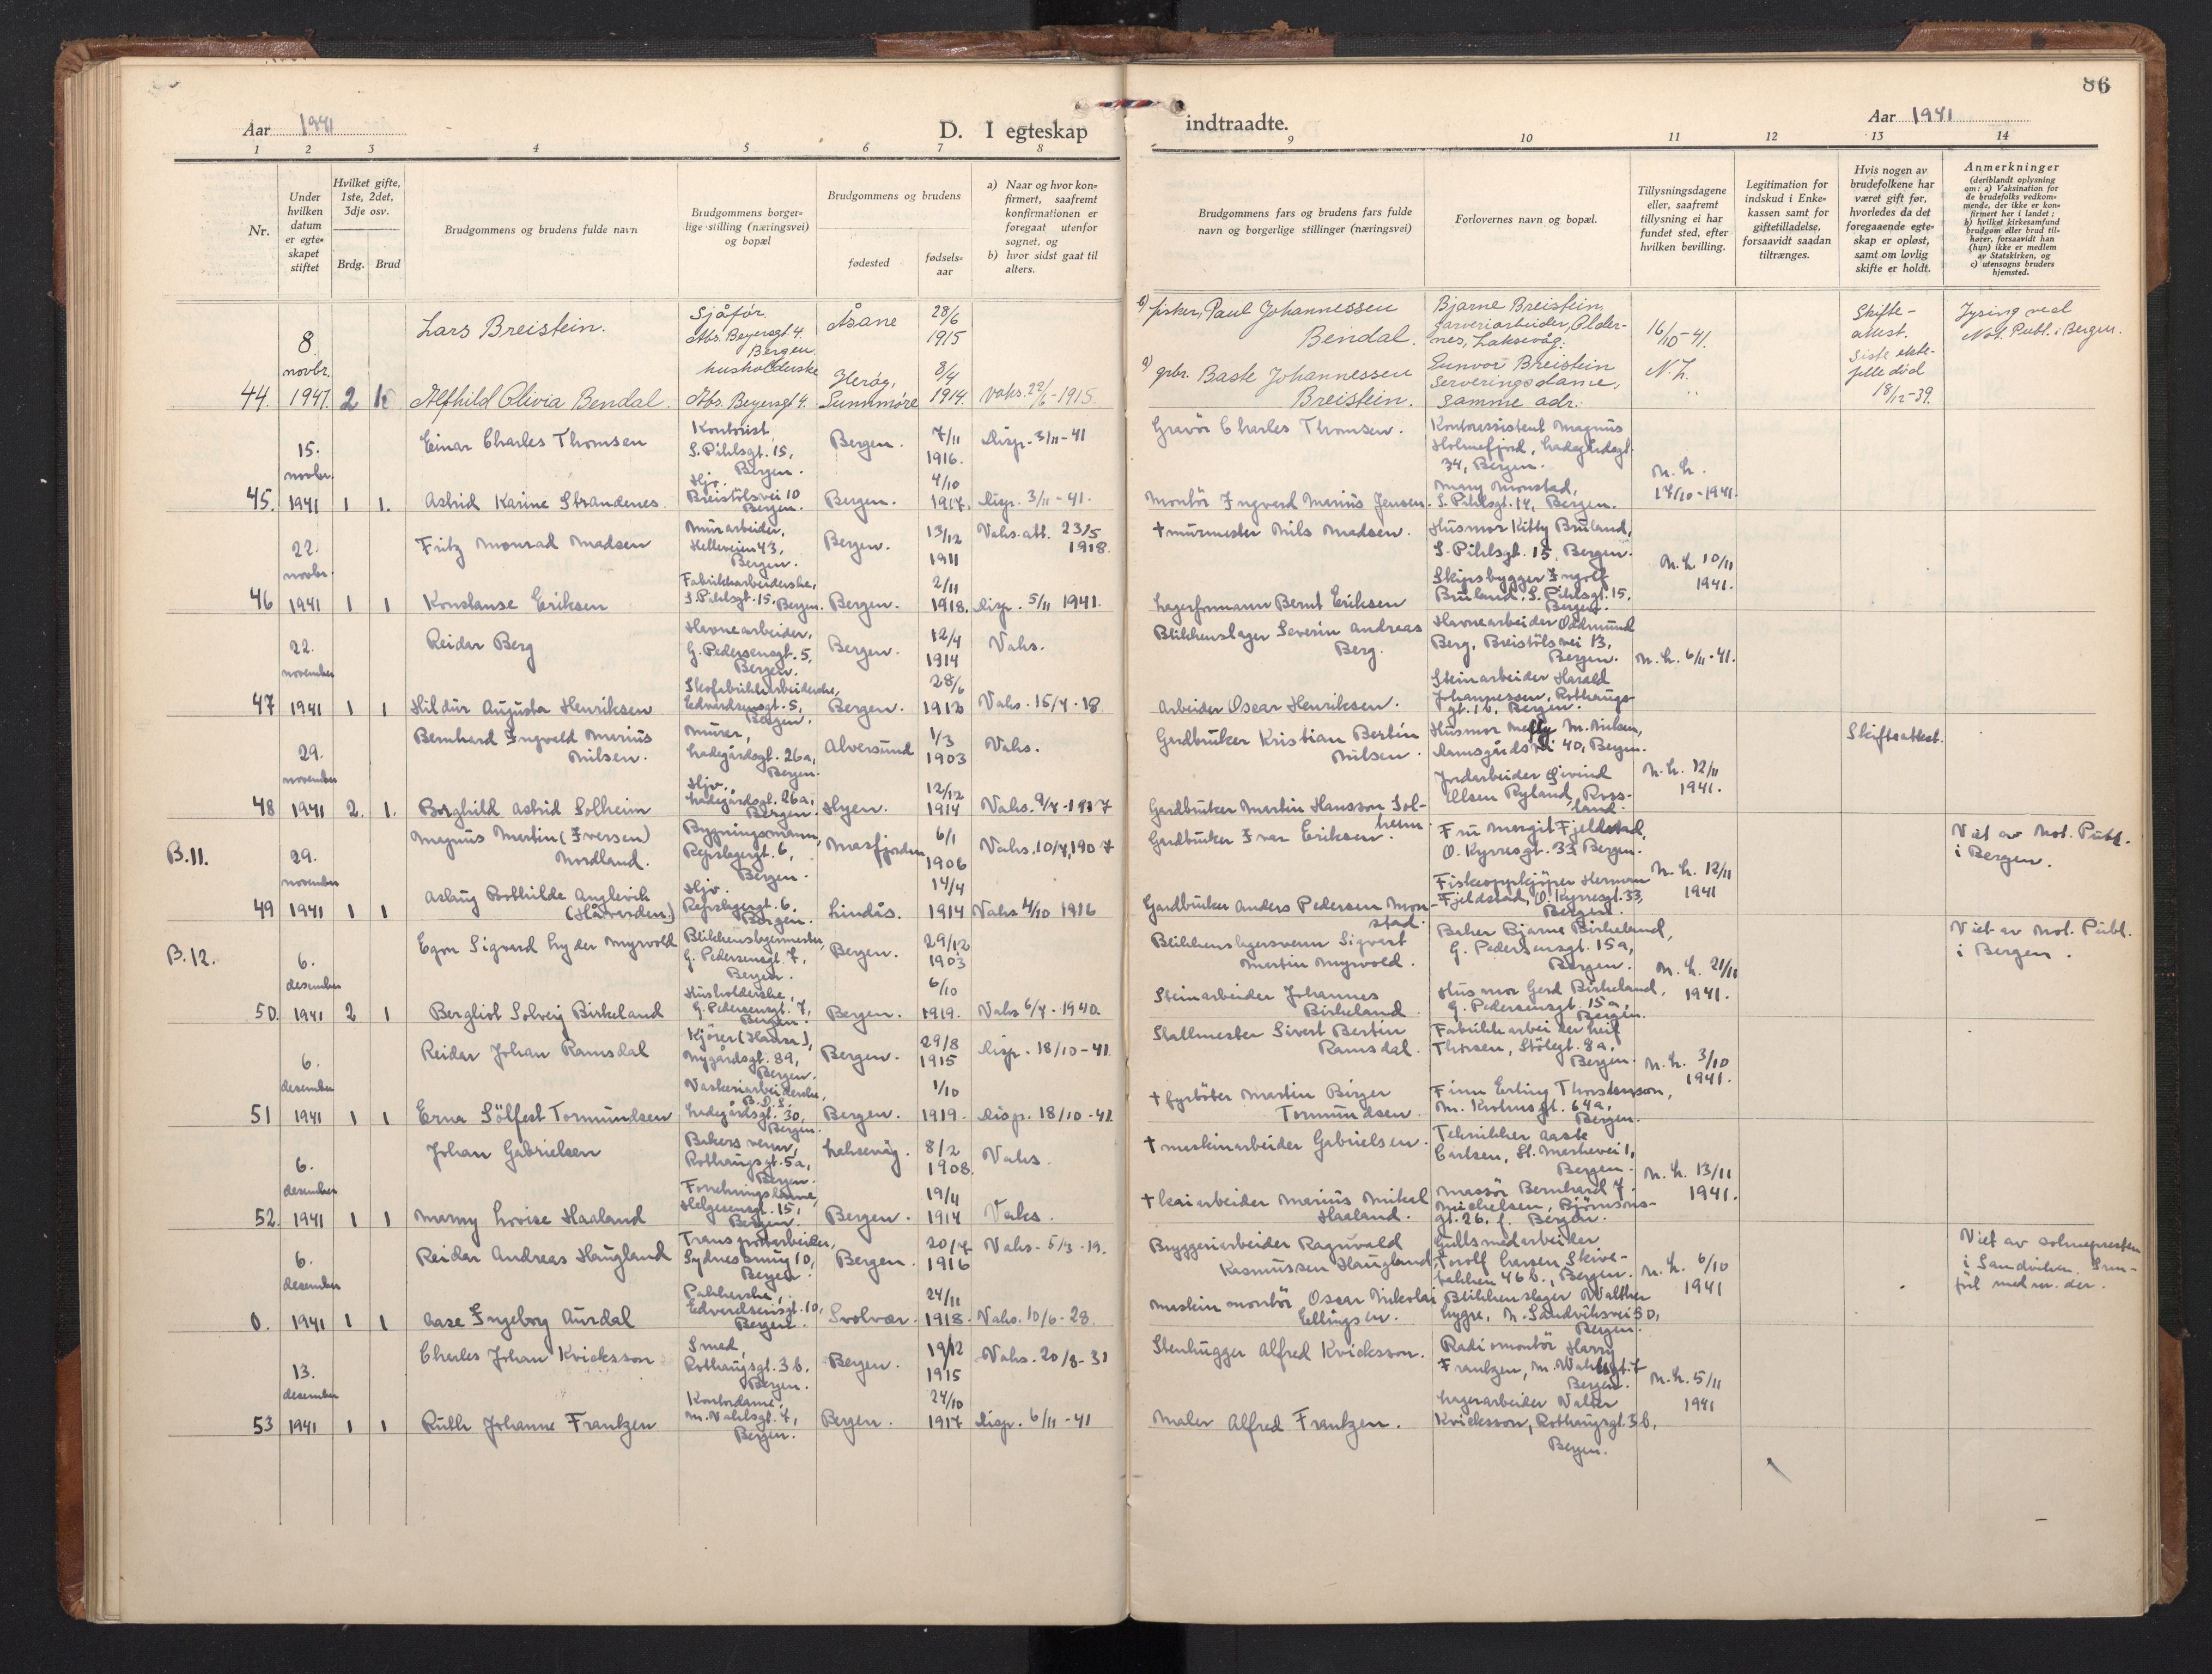 86
Aar 1941
D. I egteskap
indtraadte.
Aar 1941
1 2 3 4 5 6 7 8 9 10 11 12 13 14
Nr.
Under hvilken datum er egte-skapet stiftet
Hvilket gifte, 1ste, 2det, 3dje osv.
Brdg. Brud
Brudgommens og brudens fulde navn
Brudgommens borger-lige stilling (næringsvei) og bopæl
Brudgommens og brudens
fødested
fødsels-aar
a) Naar og hvor kon-firmert, saafremt konfirmationen er foregaat utenfor sognet, og
b) hvor sidst gaat til alters.
Brudgommens fars og brudens fars fulde navn og borgerlige stillinger (næringsvei)
Forlovernes navn og bopæl.
Tillysningsdagene eller, saafremt tillysning ei har fundet sted, efter hvilken bevilling.
Legitimation for indskud i Enke-kassen samt for giftetilladelse, forsaavidt saadan tiltrænges.
Hvis nogen av brudefolkene har været gift før, hvorledes da det foregaaende egte-skap er opløst, samt om lovlig skifte er holdt.
Anmerkninger
(deriblandt oplysning om: a) Vaksination for de brudefolks vedkom-mende, der ikke er kon-firmert her i landet; b) hvilket kirkesamfund brudgom eller brud til-hører, forsaavidt han (hun) ikke er medlem av Statskirken, og c) utensogns bruders hjemsted.
44. 8. novbr. 1941. 2
Lars Breistein.
Sjåfør.
Abs. Beyersgt. 4.
Bergen.
Åsane
28/6
1915
b) fisker, Paul Johannessen
Bendal.
Bjarne Breistein,
garveriarbeider, Older-
nes, Laksevåg.
16/10-41.
N.L.
Skifte-
attest.
Siste ekte-
felle död
18/12-39.
Lysing ved
Not. Publ. i Bergen.
Alfhild Olivia Bendal.
husholderske
Abs. Beyersgt. 4.
Herøy,
Sunnmøre
8/4
1914.
Vaks. 22/6-1915.
a) gbr. Baste Johannessen
Breistein.
Gunvor Breistein
Serveringsdame,
samme adr.
45. 15. novbr. 1941 1 1.
Einar Charles Thomsen
Kontorist,
S. Pihlsgt. 15,
Bergen.
Bergen.
7/11
1916.
Disp. 3/11-41
Gravör Charles Thomsen.
Kontorassistent Magnus
Holmefjord, Ladegårdsgt.
34, Bergen.
N.L.
17/10-1941.
Astrid Karine Strandenes.
Hjv.
Breistölsvei 10
Bergen.
Bergen.
4/10
1917.
Disp. 3/11-41.
Montör Ingvard Marius Jensen.
Mary Monstad,
S. Pihlsgt. 14, Bergen.
46 22. novbr. 1941 1 1
Fritz Monrad Madsen
Murarbeider,
Helleveien 43,
Bergen.
Bergen.
13/12
1911
Vaks. att. 23/5
1918.
† murmester Nils Madsen.
Husmor Kitty Bruland,
S. Pihlsgt. 15, Bergen.
N.L. 10/11
1941.
Konstanse Eriksen
Fabrikkarbeiderske,
S. Pihlsgt. 15, Bergen.
Bergen.
2/11
1918.
Disp. 5/11 1941.
Lagerformann Bernt Eriksen
Skipsbygger Ingolf
Bruland, S. Pihlsgt. 15,
Bergen.
47 22. november 1941 1 1
Reidar Berg
Havnearbeider,
G. Pedersensgt. 5,
Bergen.
Bergen.
12/4
1914
Vaks.
Blikkenslager Severin Andreas
Berg.
Havnearbeider Oddmund
Berg, Breistölsvei 13,
Bergen.
N.L. 6/11-41.
Hildur Augusta Henriksen
Skofabrikkarbeiderske,
Edvardsensgt. 5,
Bergen.
Bergen.
28/6
1913
Vaks. 15/4-18
Arbeider Oscar Henriksen.
Steinarbeider Harald
Johannessen, Rothaugs-
gt. 16, Bergen.
48 29. november 1941 2. 1.
Bernhard Ingvald Marius
Nilsen.
Murer,
Ladegårdsgt. 26a,
Bergen.
Alversund
1/3
1903
Vaks.
Gardbruker Kristian Bertin
Nilsen
Husmor Melly M. Nilsen,
Damsgårdsvei 40, Bergen.
N.L. 12/11
1941.
Skifteattest.
Borghild Astrid Solheim
Hjv.
Ladegårdsgt. 26a,
Bergen.
Hyen.
12/12
1914
Vaks. 9/7-1917
Gardbruker Martin Hansson Sol-
heim.
Jordarbeider Eivind
Olsen Ryland, Ross-
land.
B.11.
49 29. november 1941 1 1
Magnus Martin (Iversen)
Nordland.
Bygningsmann,
Repslagergt. 6,
Bergen.
Masfjorden
6/1
1906
Vaks. 10/7, 1907
Gardbruker Ivar Eriksen
Fru Margit Fjeldstad,
O. Kyrresgt. 33 Bergen.
N.L. 12/11
1941
Viet av Not. Publ.
i Bergen.
Aslaug Bothilde Anglevik
(Håvarden.)
Hjv.
Repslagergt. 6,
Bergen.
Lindås.
14/4
1914
Vaks 4/10 1916
Gardbruker Anders Pedersen Mon-
stad.
Fiskeoppkjöper Herman
Fjeldstad, O. Kyrresgt. 33,
Bergen.
B.12.
50. 6. desember 1941 2 1
Egon Sigvard Lyder Myrvold
Blikkenslagermester,
G. Pedersensgt. 7,
Bergen.
Bergen.
29/12
1903
Blikkenslagersvenn Sigvart
Martin Myrvold.
Baker Bjarne Birkeland,
G. Pedersensgt. 15a,
Bergen.
N.L. 21/11
1941.
Viet av Not. Publ.
i Bergen.
Bergliot Solveig Birkeland
Husholderske,
G. Pedersensgt. 7,
Bergen.
Bergen.
6/10
1919.
Vaks 6/4-1940.
Steinarbeider Johannes
Birkeland
Husmor Gerd Birkeland,
G. Pedersensgt. 15a,
Bergen.
51 6. desember 1941 1 1
Reidar Johan Ramsdal
Kjörer (Hansa),
Nygårdsgt. 89,
Bergen.
Bergen.
29/8
1915
Disp. 18/10-41.
Stallmester Sivert Bertin
Ramsdal.
Fabrikkarbeider Leif
Thorsen, Stölegt. 8a,
Bergen.
N.L. 3/10
1941.
Erna Sölfest Tormundsen
Vaskeriarbeiderske,
B.D.S.
Ladegårdsgt. 30,
Bergen.
Bergen.
1/10
1919.
Disp. 18/10-41.
† fyrböter Martin Birger
Tormundsen.
Finn Erling Thorstenson,
M. Krohnsgt. 64a,
Bergen.
52. 6. desember 1941 1 1
Johan Gabrielsen
Bakersvenn,
Rothaugsgt. 5a,
Bergen.
Laksevåg.
8/2
1908.
Vaks.
† maskinarbeider Gabrielsen.
Tekniker Aaste
Carlsen, St. Markevei 1,
Bergen.
N.L. 13/11
1941.
Marny Lovise Haaland
Helgesensgt. 15,
Bergen.
Bergen.
19/11
1914
Vaks.
† kaiarbeider Marius Mikal
Haaland.
Massör Bernhard J.
Michelsen, Björnsons-
gt. 26, Bergen.
0. 6. desember 1941 1 1
Reidar Andreas Haugland
Transportarbeider,
Sydnessmug 10,
Bergen.
Bergen.
20/7
1916
Vaks. 5/3-19.
Bryggeriarbeider Ragnvald
Rasmussen Haugland,
Gullsmedarbeider
Torolf Larsen, Skive-
bakken 46b., Bergen.
N.L. 6/10
1941
Viet av soknepresten
i Sandviken. Inn-
fört med nr. der.
Aase Ingeborg Aurdal
Pakkerske,
Edvardsensgt. 10,
Bergen.
Svolvær.
24/11
1918.
Vaks. 10/6-28.
Maskinmontör Oscar Nikolai
Ellingsen.
Blikkenslager Walther
Lygre, N. Sandviksvei 50,
Bergen.
53 13. desember 1941 1 1
Charles Johan Kvicksson
Smed,
Rothaugsgt. 3b,
Bergen.
Bergen.
19/12
1915
Vaks. 20/8-31
Stenhugger Alfred Kvicksson.
Radiomontör Harry
Frantzen, M. Wahlsgt. 7
Bergen.
N.L. 5/11
1941
Ruth Johanne Frantzen
Kontordame,
M. Vahlsgt. 7,
Bergen.
Bergen.
24/10
1917
Disp. 6/11-41
Maler Alfred Frantzen.
Lagerarbeider Walter
Kvicksson, Rothaugsgt. 3b,
Bergen.